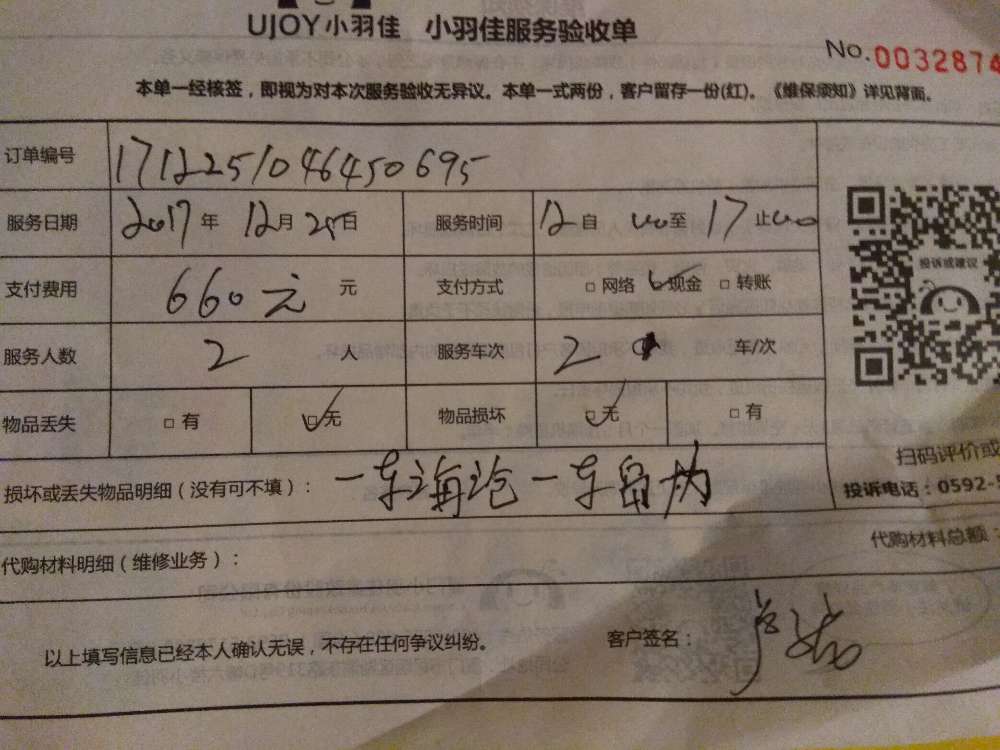 UJOY小羽佳 小羽佳服务验收单
No.0032874
本单一经核签，即视为对本次服务验收无异议。本单一式两份，客户留存一份(红)。《维保须知》详见背面。
订单编号 1712251046450695
服务日期 2017年 12月 25日 服务时间 12自 00至 17止00
支付费用 660元 元 支付方式 □网络 □现金 □转账
投诉或建议
服务人数 2 人 服务车次 2 车/次
物品丢失 □有 □无 物品损坏 □无 □有
扫码评价或
损坏或丢失物品明细（没有可不填）： 一车海沧一车岛内
投诉电话：0592-5
代购材料明细（维修业务）： 代购材料总额：
以上填写信息已经本人确认无误，不存在任何争议纠纷。 客户签名：